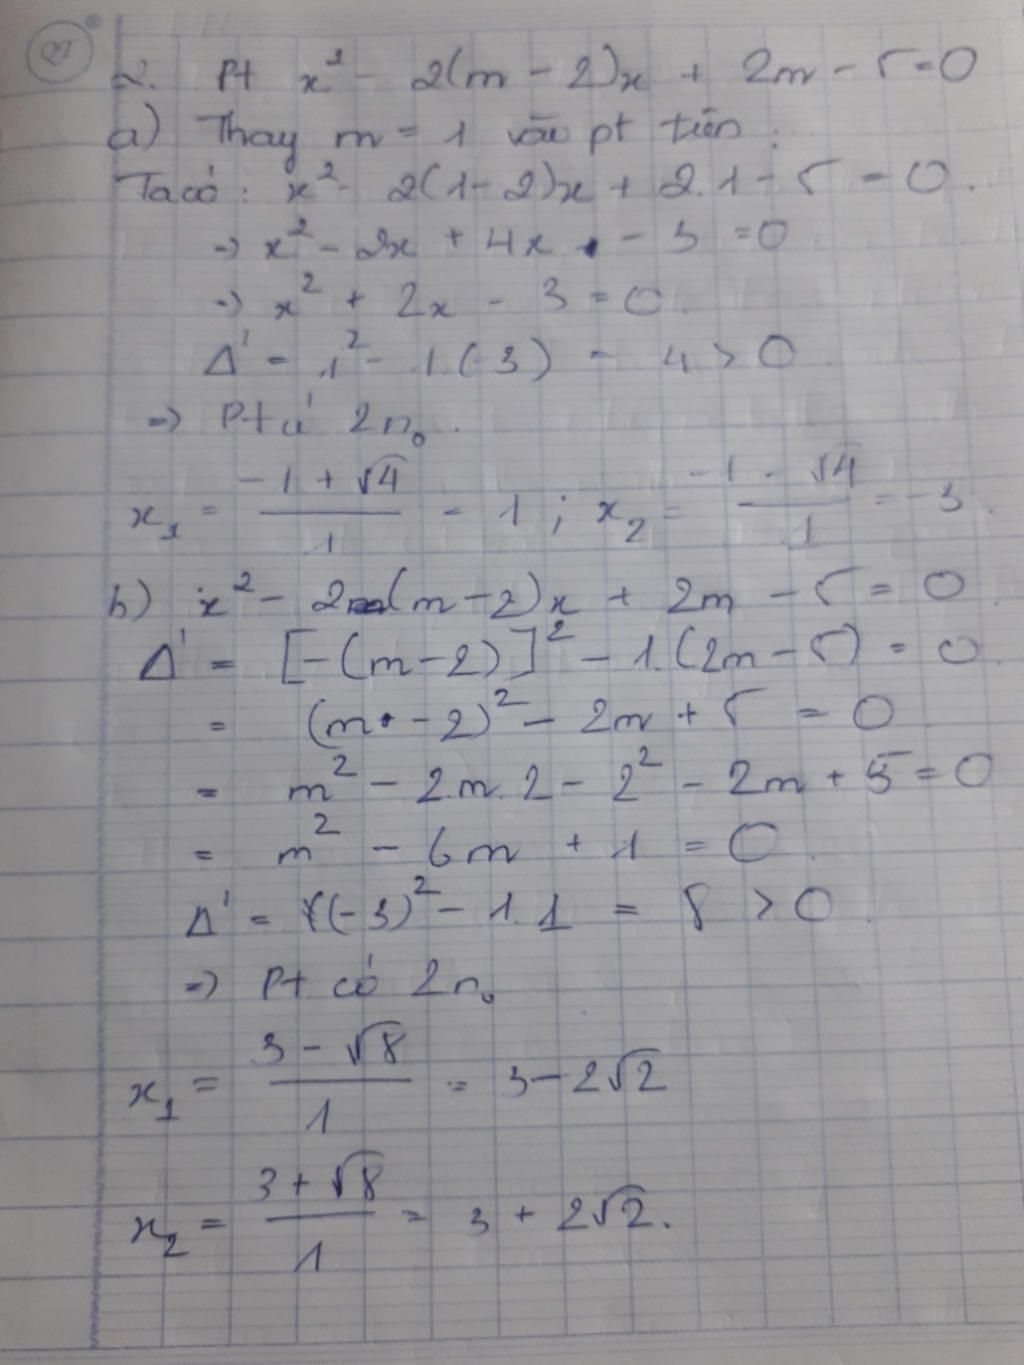 QT
2. Pt x² - 2(m - 2)x + 2m - 5 = 0
a) Thay m = 1 vào pt trên :
Ta có : x² - 2(1 - 2)x + 2.1 - 5 = 0.
=> x² - 2x + 4x - 3 = 0
=> x² + 2x - 3 = 0
Δ' = 1² - 1.(-3) = 4 > 0
=> Pt có 2 n₀.
x₁ = (-1 + √4)/1 = 1 ; x₂ = (-1 - √4)/1 = -3.
b) x² - 2(m - 2)x + 2m - 5 = 0
Δ' = [-(m - 2)]² - 1.(2m - 5) = 0.
= (m - 2)² - 2m + 5 = 0
= m² - 2.m.2 - 2² - 2m + 5 = 0
= m² - 6m + 1 = 0
Δ' = (-3)² - 1.1 = 8 > 0.
=> Pt có 2 n₀
x₁ = (3 - √8)/1 = 3 - 2√2
x₂ = (3 + √8)/1 = 3 + 2√2.